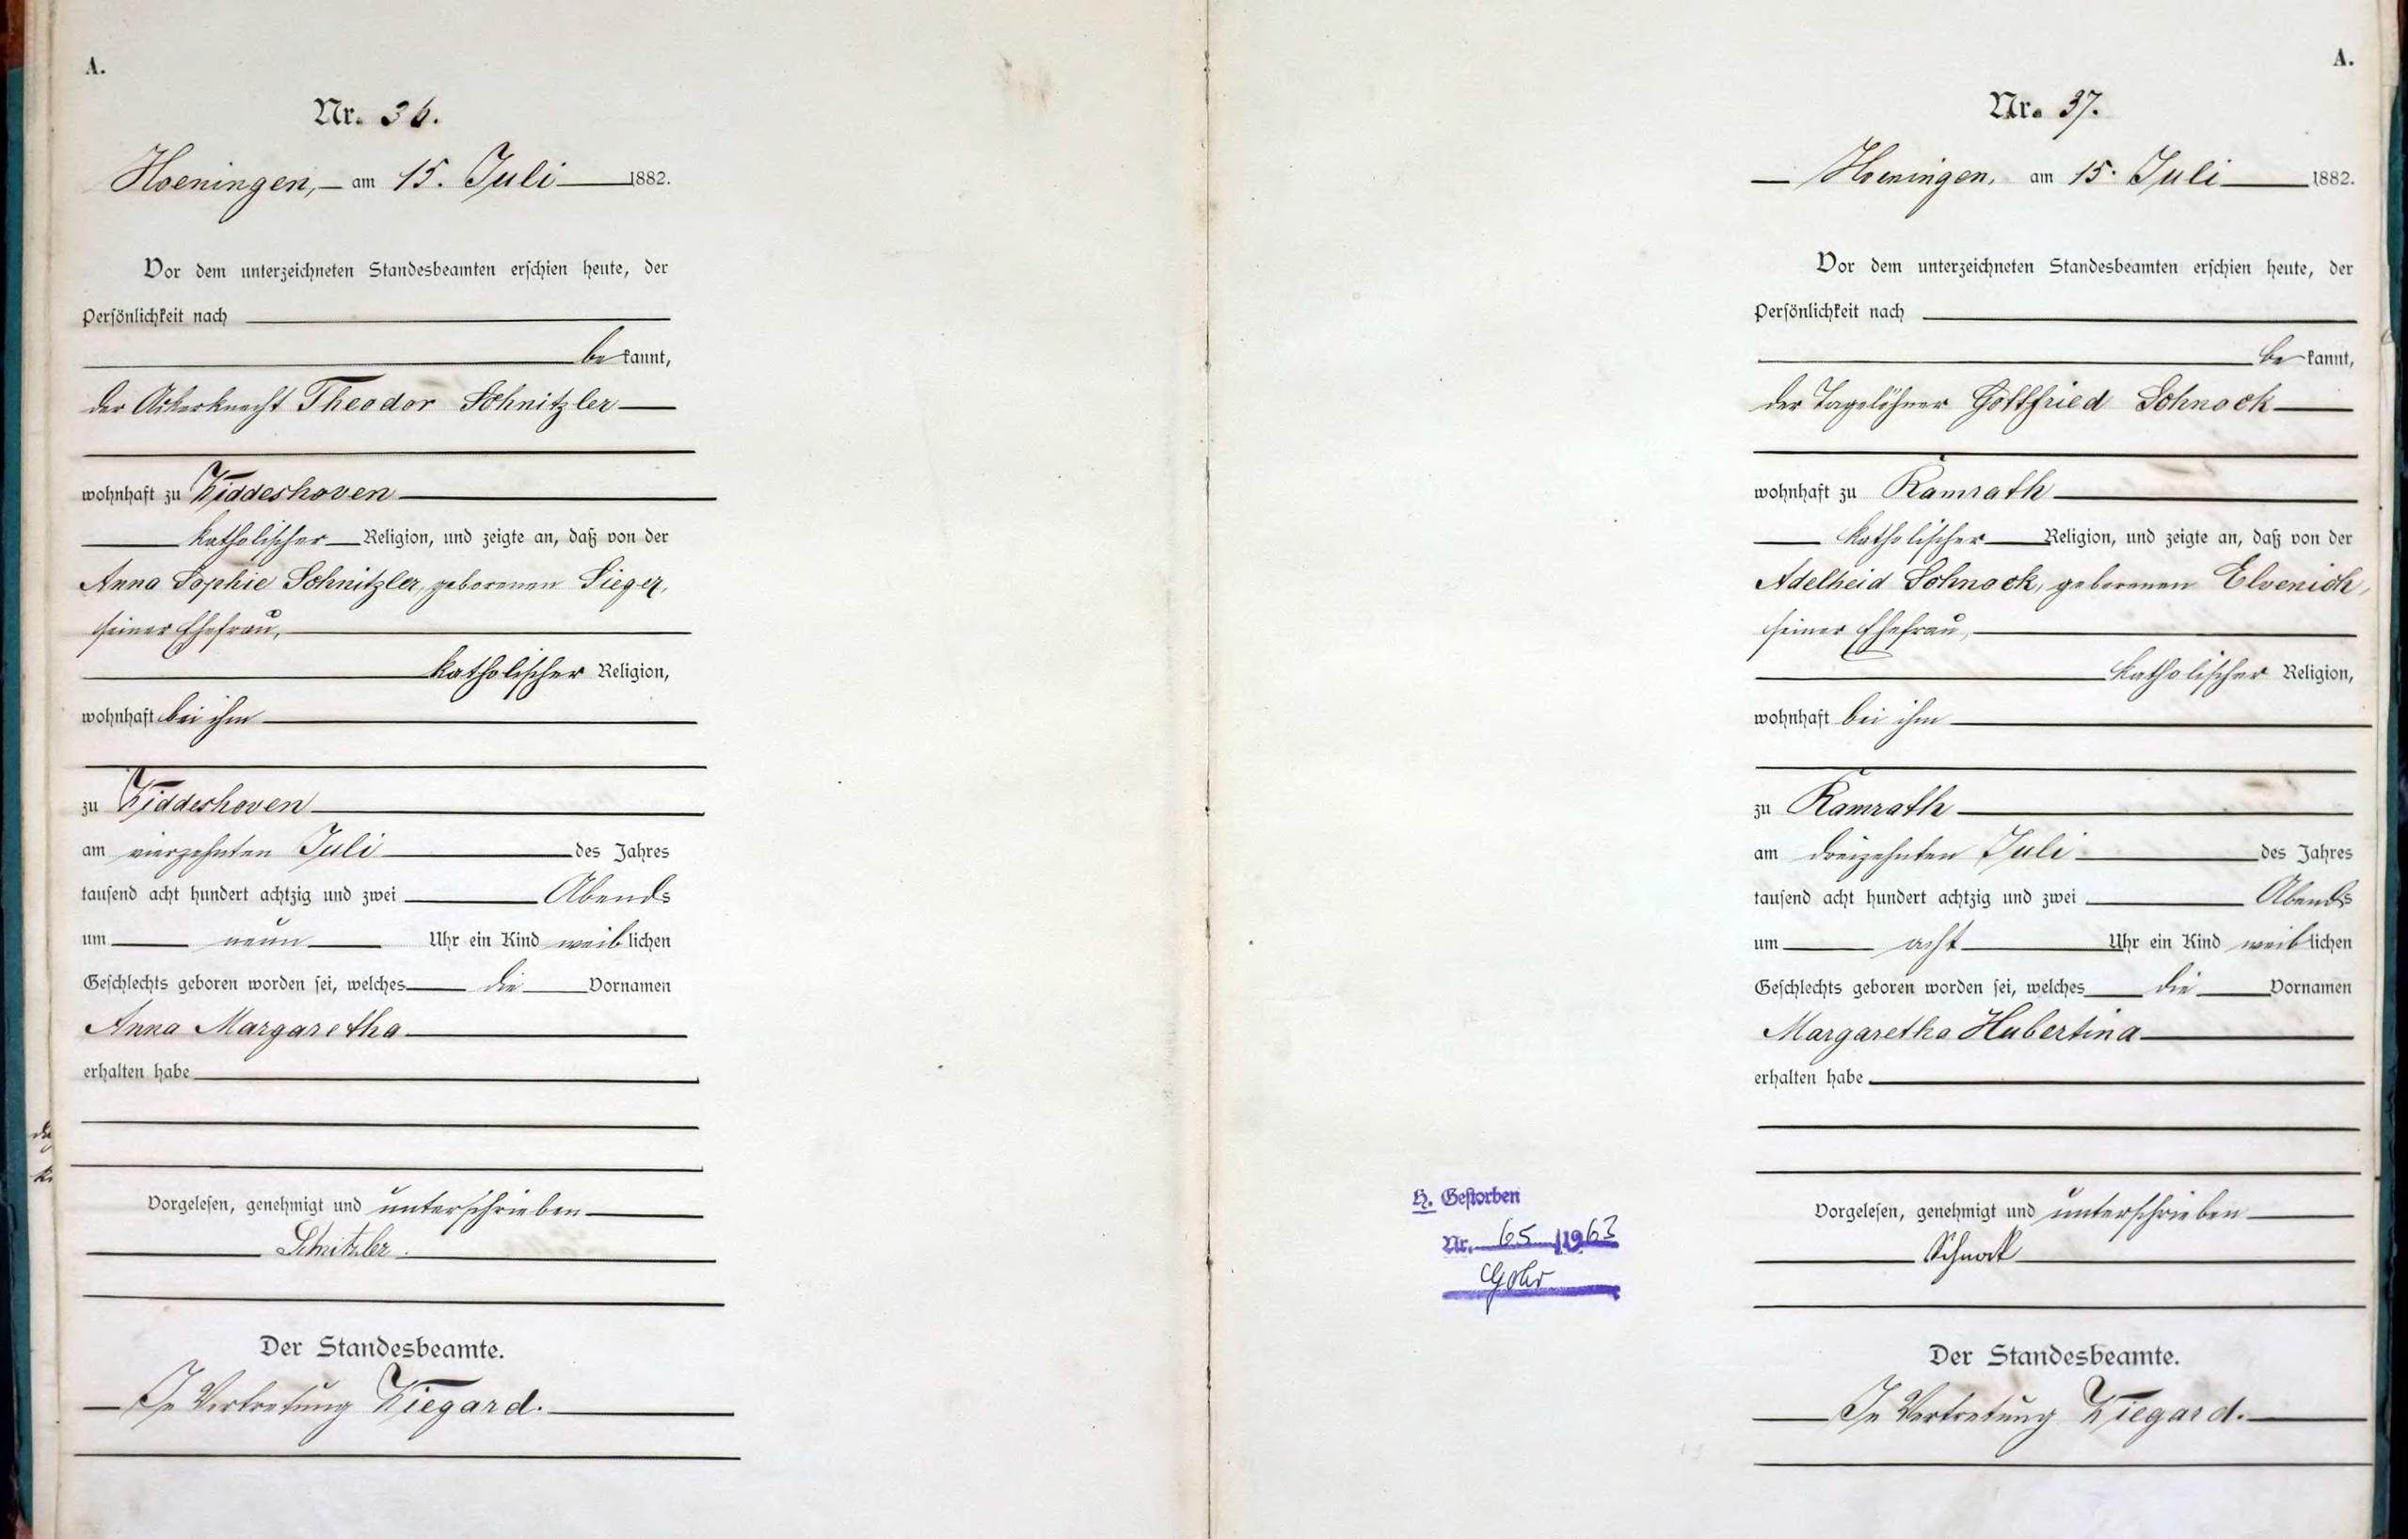 A.
Nr. 36.
Hoeningen, am 15. Juli 1882.
Vor dem unterzeichneten Standesbeamten erschien heute, der
Persönlichkeit nach
bekannt,
der Ackerknecht Theodor Schnitzler
wohnhaft zu Widdeshoven
katholischer Religion, und zeigte an, daß von der
Anna Sophie Schnitzler, geborenen Sieger,
seiner Ehefrau,
katholischer Religion,
wohnhaft bei ihm
zu Widdeshoven
am vierzehnten Juli des Jahres
tausend acht hundert achtzig und zwei Abends
um neun Uhr ein Kind weiblichen
Geschlechts geboren worden sei, welches die Vornamen
Anna Margaretha
erhalten habe
Vorgelesen, genehmigt und unterschrieben
Schnitzler.
Der Standesbeamte.
In Vertretung Wiegard.
A.
Nr. 37.
Hoeningen, am 15. Juli 1882.
Vor dem unterzeichneten Standesbeamten erschien heute, der
Persönlichkeit nach
bekannt,
der Tagelöhner Gottfried Schnock
wohnhaft zu Ramrath
katholischer Religion, und zeigte an, daß von der
Adelheid Schnock, geborenen Elvenich,
seiner Ehefrau,
katholischer Religion,
wohnhaft bei ihm
zu Ramrath
am dreizehnten Juli des Jahres
tausend acht hundert achtzig und zwei Abends
um acht Uhr ein Kind weiblichen
Geschlechts geboren worden sei, welches die Vornamen
Margaretha Hubertina
erhalten habe
Vorgelesen, genehmigt und unterschrieben
Schnock
Der Standesbeamte.
In Vertretung Wiegard.
H. Gestorben
Nr. 65/1963
Gohr